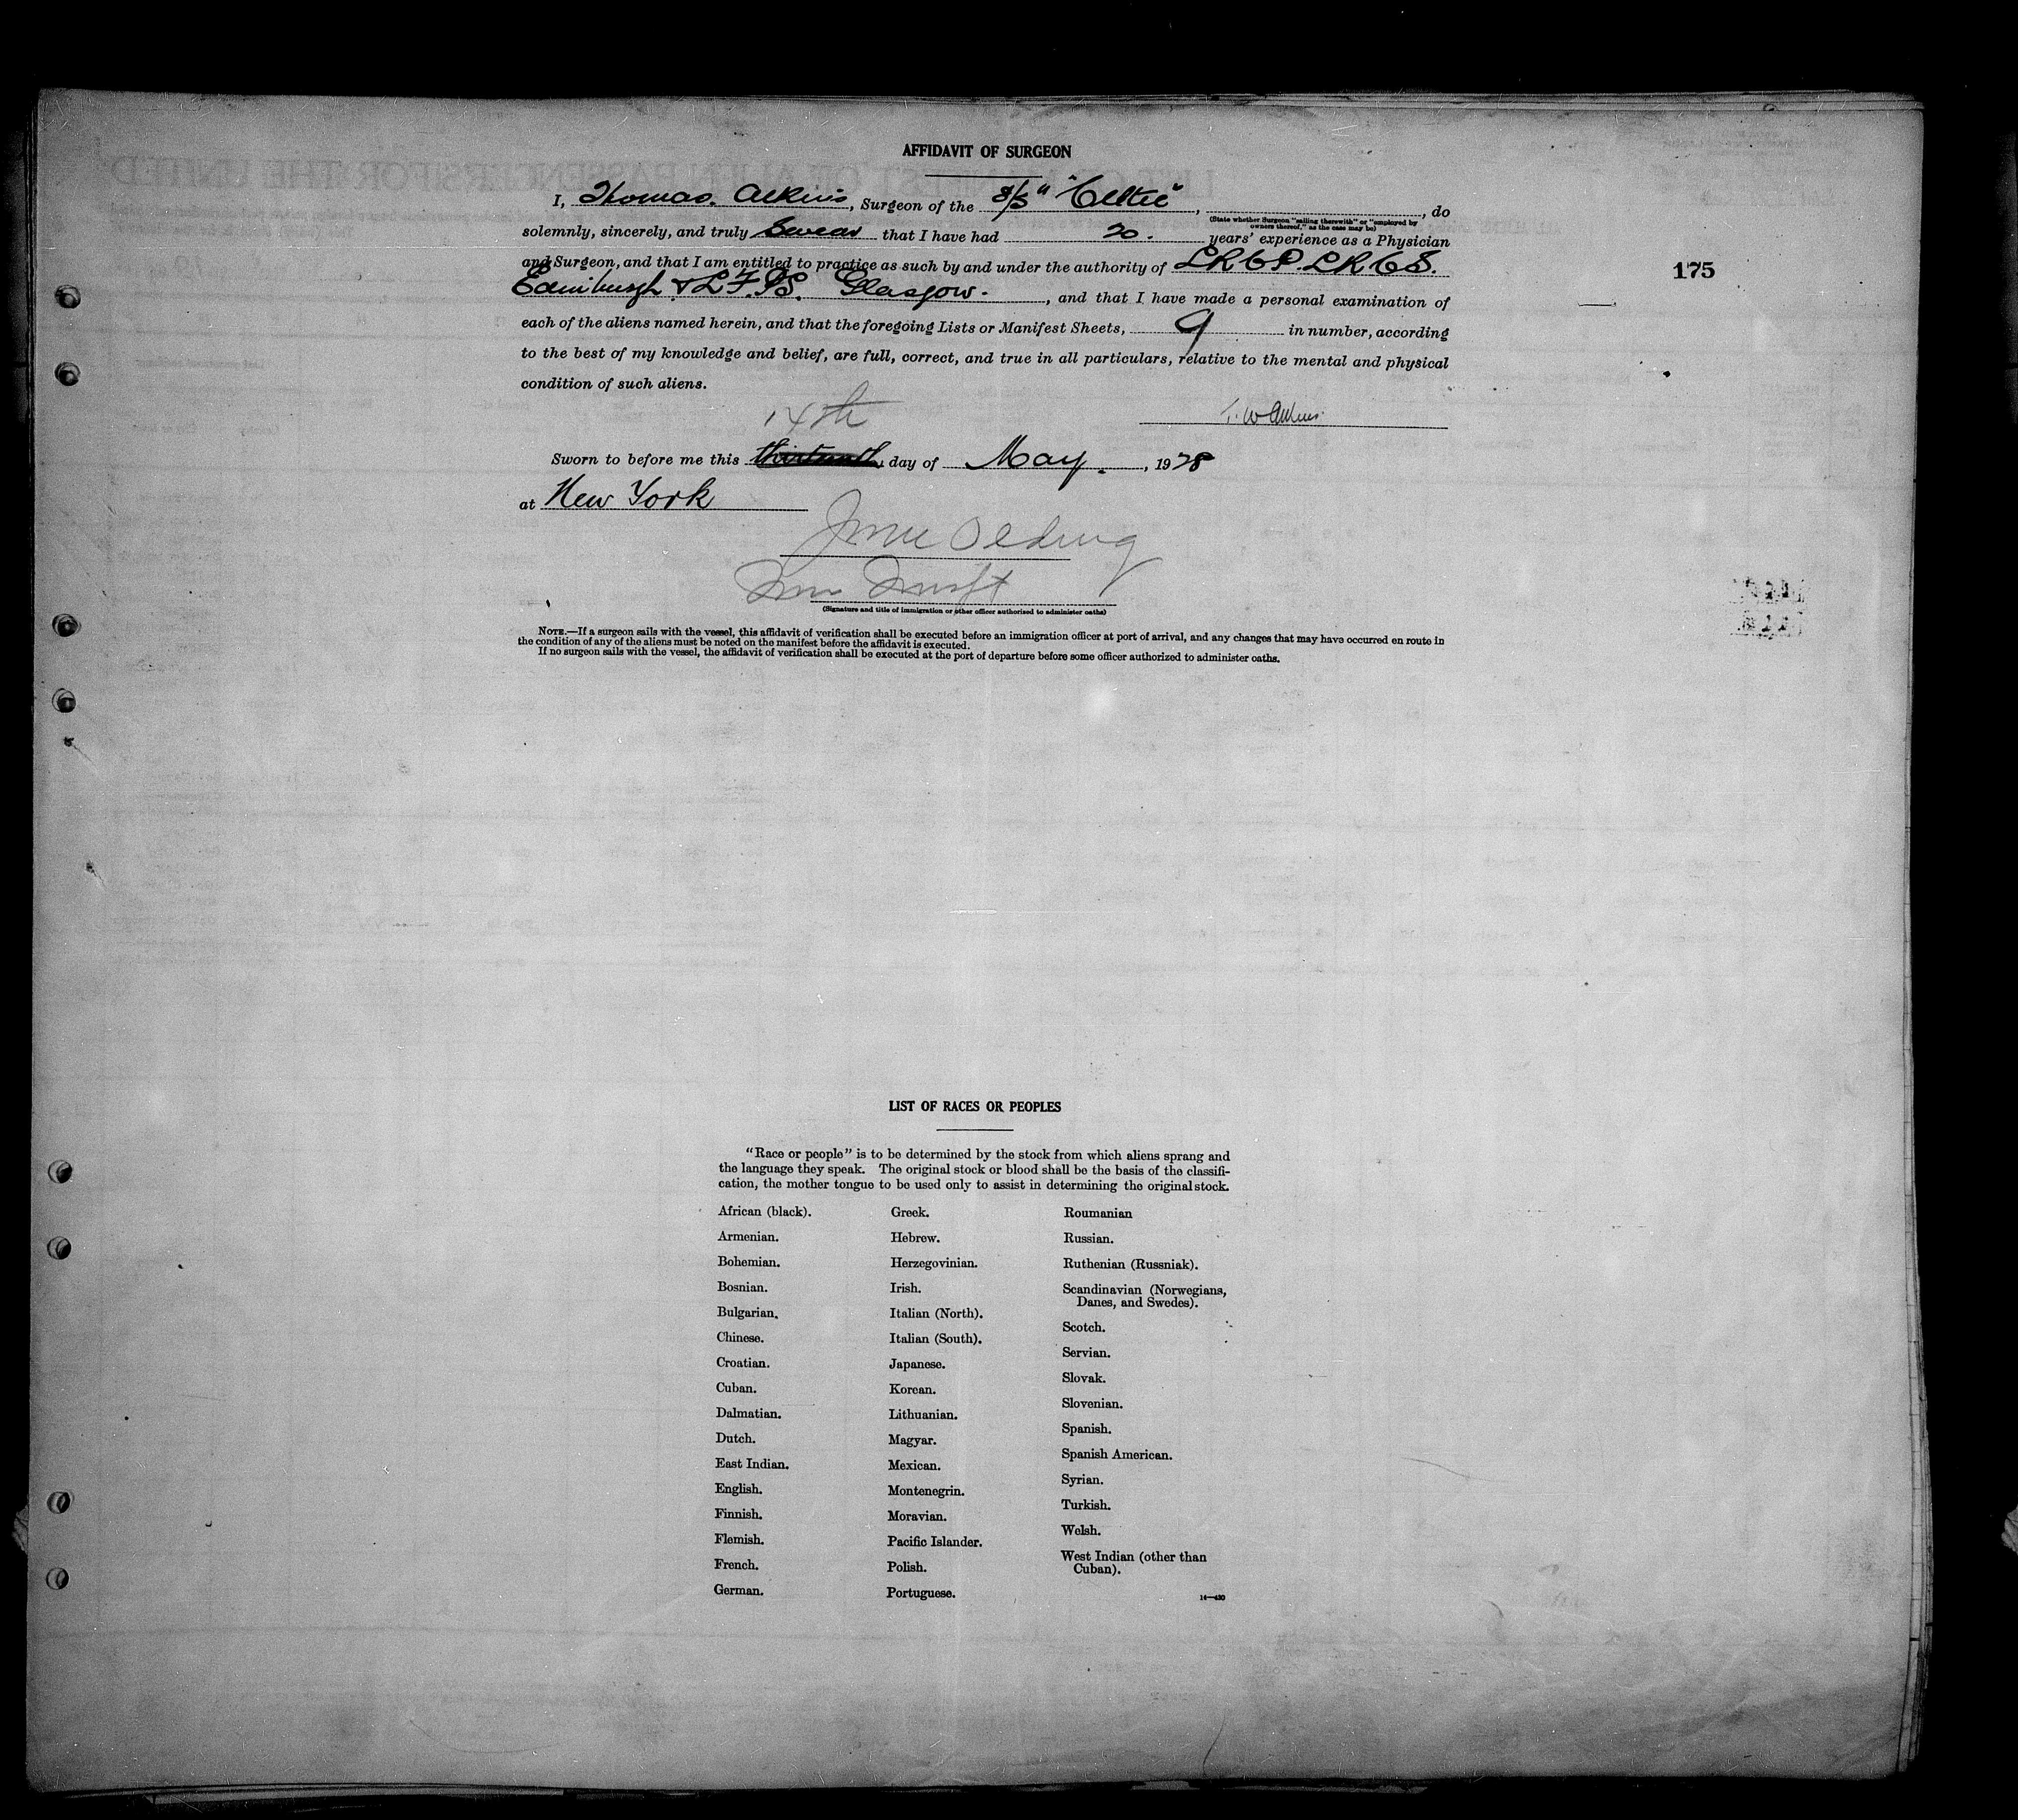 AFFIDAVIT OF SURGEON
I, Thomas. Atkins, Surgeon of the S/S "Celtic", , do
(State whether Surgeon "sailing therewith" or "employed by
owners thereof," as the case may be)
solemnly, sincerely, and truly Swear that I have had 20. years' experience as a Physician
and Surgeon, and that I am entitled to practice as such by and under the authority of LRCP. LRCS.
Edinburgh & L.F.P.S. Glasgow. , and that I have made a personal examination of
175
each of the aliens named herein, and that the foregoing Lists or Manifest Sheets, 9 in number, according
to the best of my knowledge and belief, are full, correct, and true in all particulars, relative to the mental and physical
condition of such aliens.
14th
T. W Atkins.
Sworn to before me this thirteenth day of May. , 1928
at New York
(Signature and title of immigration or other officer authorized to administer oaths)
NOTE.—If a surgeon sails with the vessel, this affidavit of verification shall be executed before an immigration officer at port of arrival, and any changes that may have occurred en route in
the condition of any of the aliens must be noted on the manifest before the affidavit is executed.
If no surgeon sails with the vessel, the affidavit of verification shall be executed at the port of departure before some officer authorized to administer oaths.
LIST OF RACES OR PEOPLES
"Race or people" is to be determined by the stock from which aliens sprang and
the language they speak. The original stock or blood shall be the basis of the classifi-
cation, the mother tongue to be used only to assist in determining the original stock.
African (black).
Armenian.
Bohemian.
Bosnian.
Bulgarian.
Chinese.
Croatian.
Cuban.
Dalmatian.
Dutch.
East Indian.
English.
Finnish.
Flemish.
French.
German.
Greek.
Hebrew.
Herzegovinian.
Irish.
Italian (North).
Italian (South).
Japanese.
Korean.
Lithuanian.
Magyar.
Mexican.
Montenegrin.
Moravian.
Pacific Islander.
Polish.
Portuguese.
Roumanian
Russian.
Ruthenian (Russniak).
Scandinavian (Norwegians,
Danes, and Swedes).
Scotch.
Servian.
Slovak.
Slovenian.
Spanish.
Spanish American.
Syrian.
Turkish.
Welsh.
West Indian (other than
Cuban).
14—430